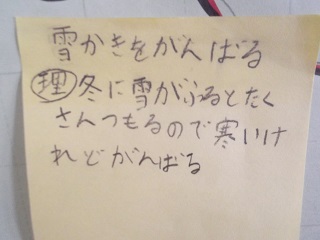 雪かきをがんばる
理 冬に雪がふるとたく
さんつもるので寒いけ
れどがんばる